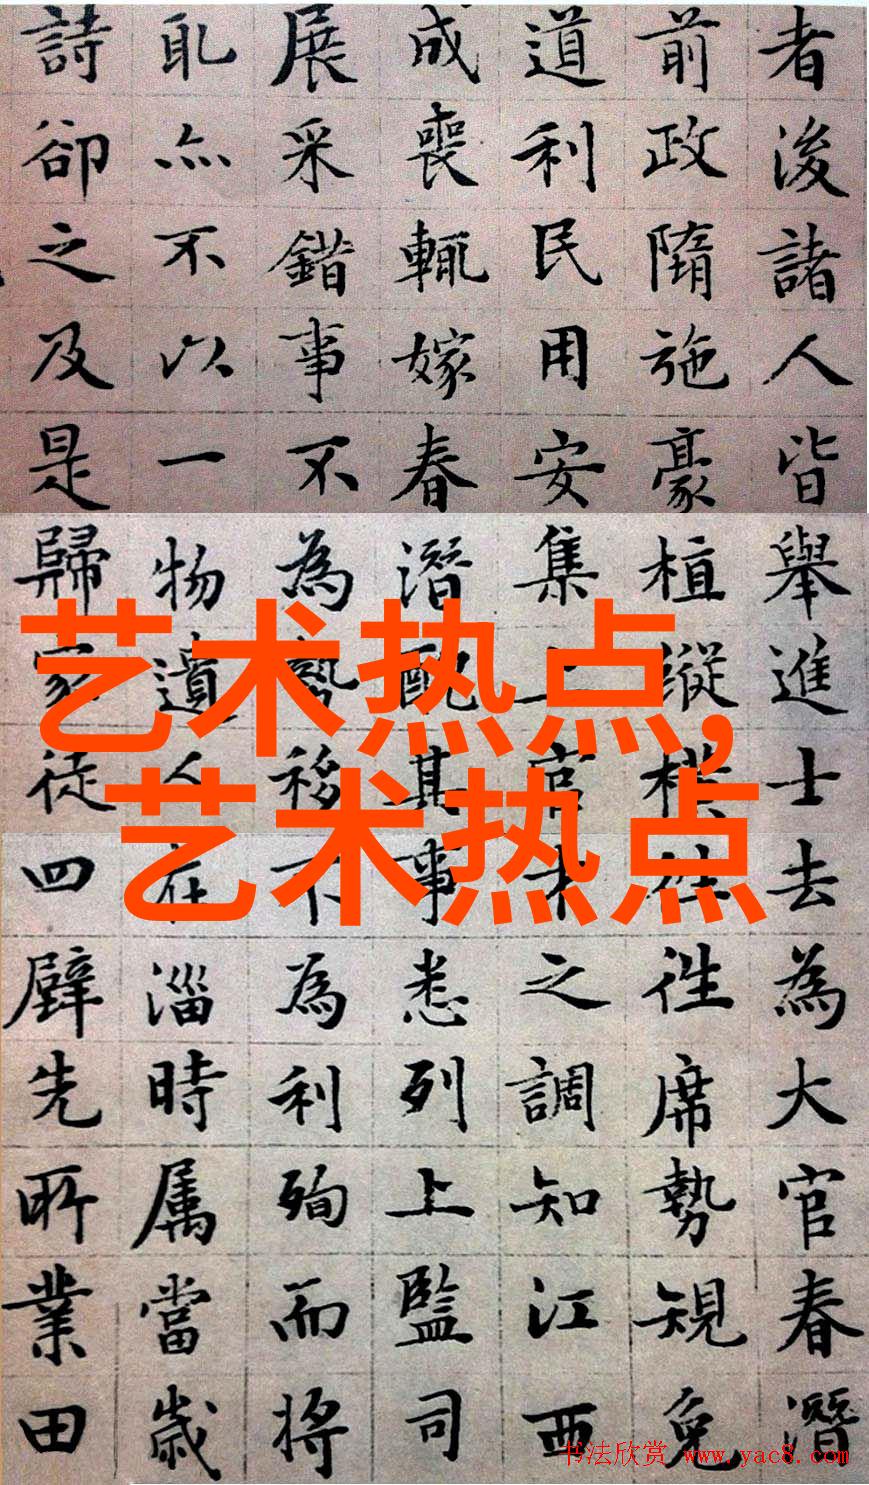 者後諸人皆舉進士去為大官春潛
前政隋施豪植縱横往徃席勢規免
道利民用安集上官才之調知江西
成喪輒嫁春潛配其事悉列上監司
展采錯事不為勢移不為利殉而將
耴亦不以一物遺人在淄時属當歲
詩卻之及是歸家徒四壁先所業田
艺术热点,
艺术热点
书法欣赏 www.yac8.com